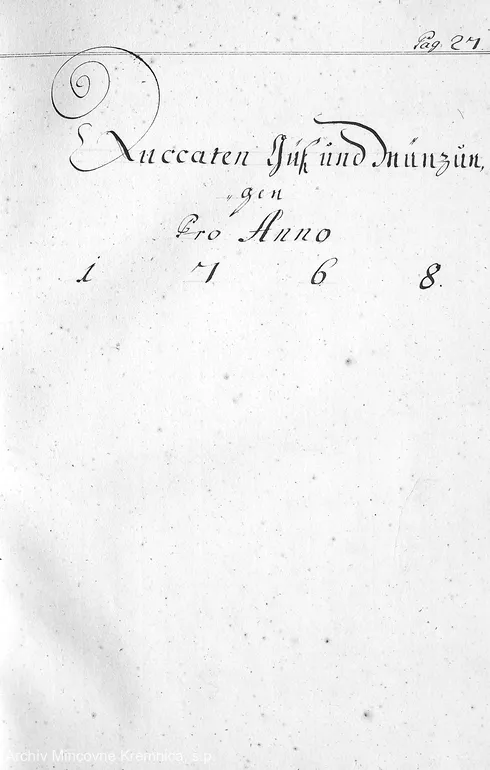 Pag. 27.
Duccaten Guß und Münzun,
„gen
Pro Anno
1 7 6 8.
Archiv Mincovne Kremnica, š.p.